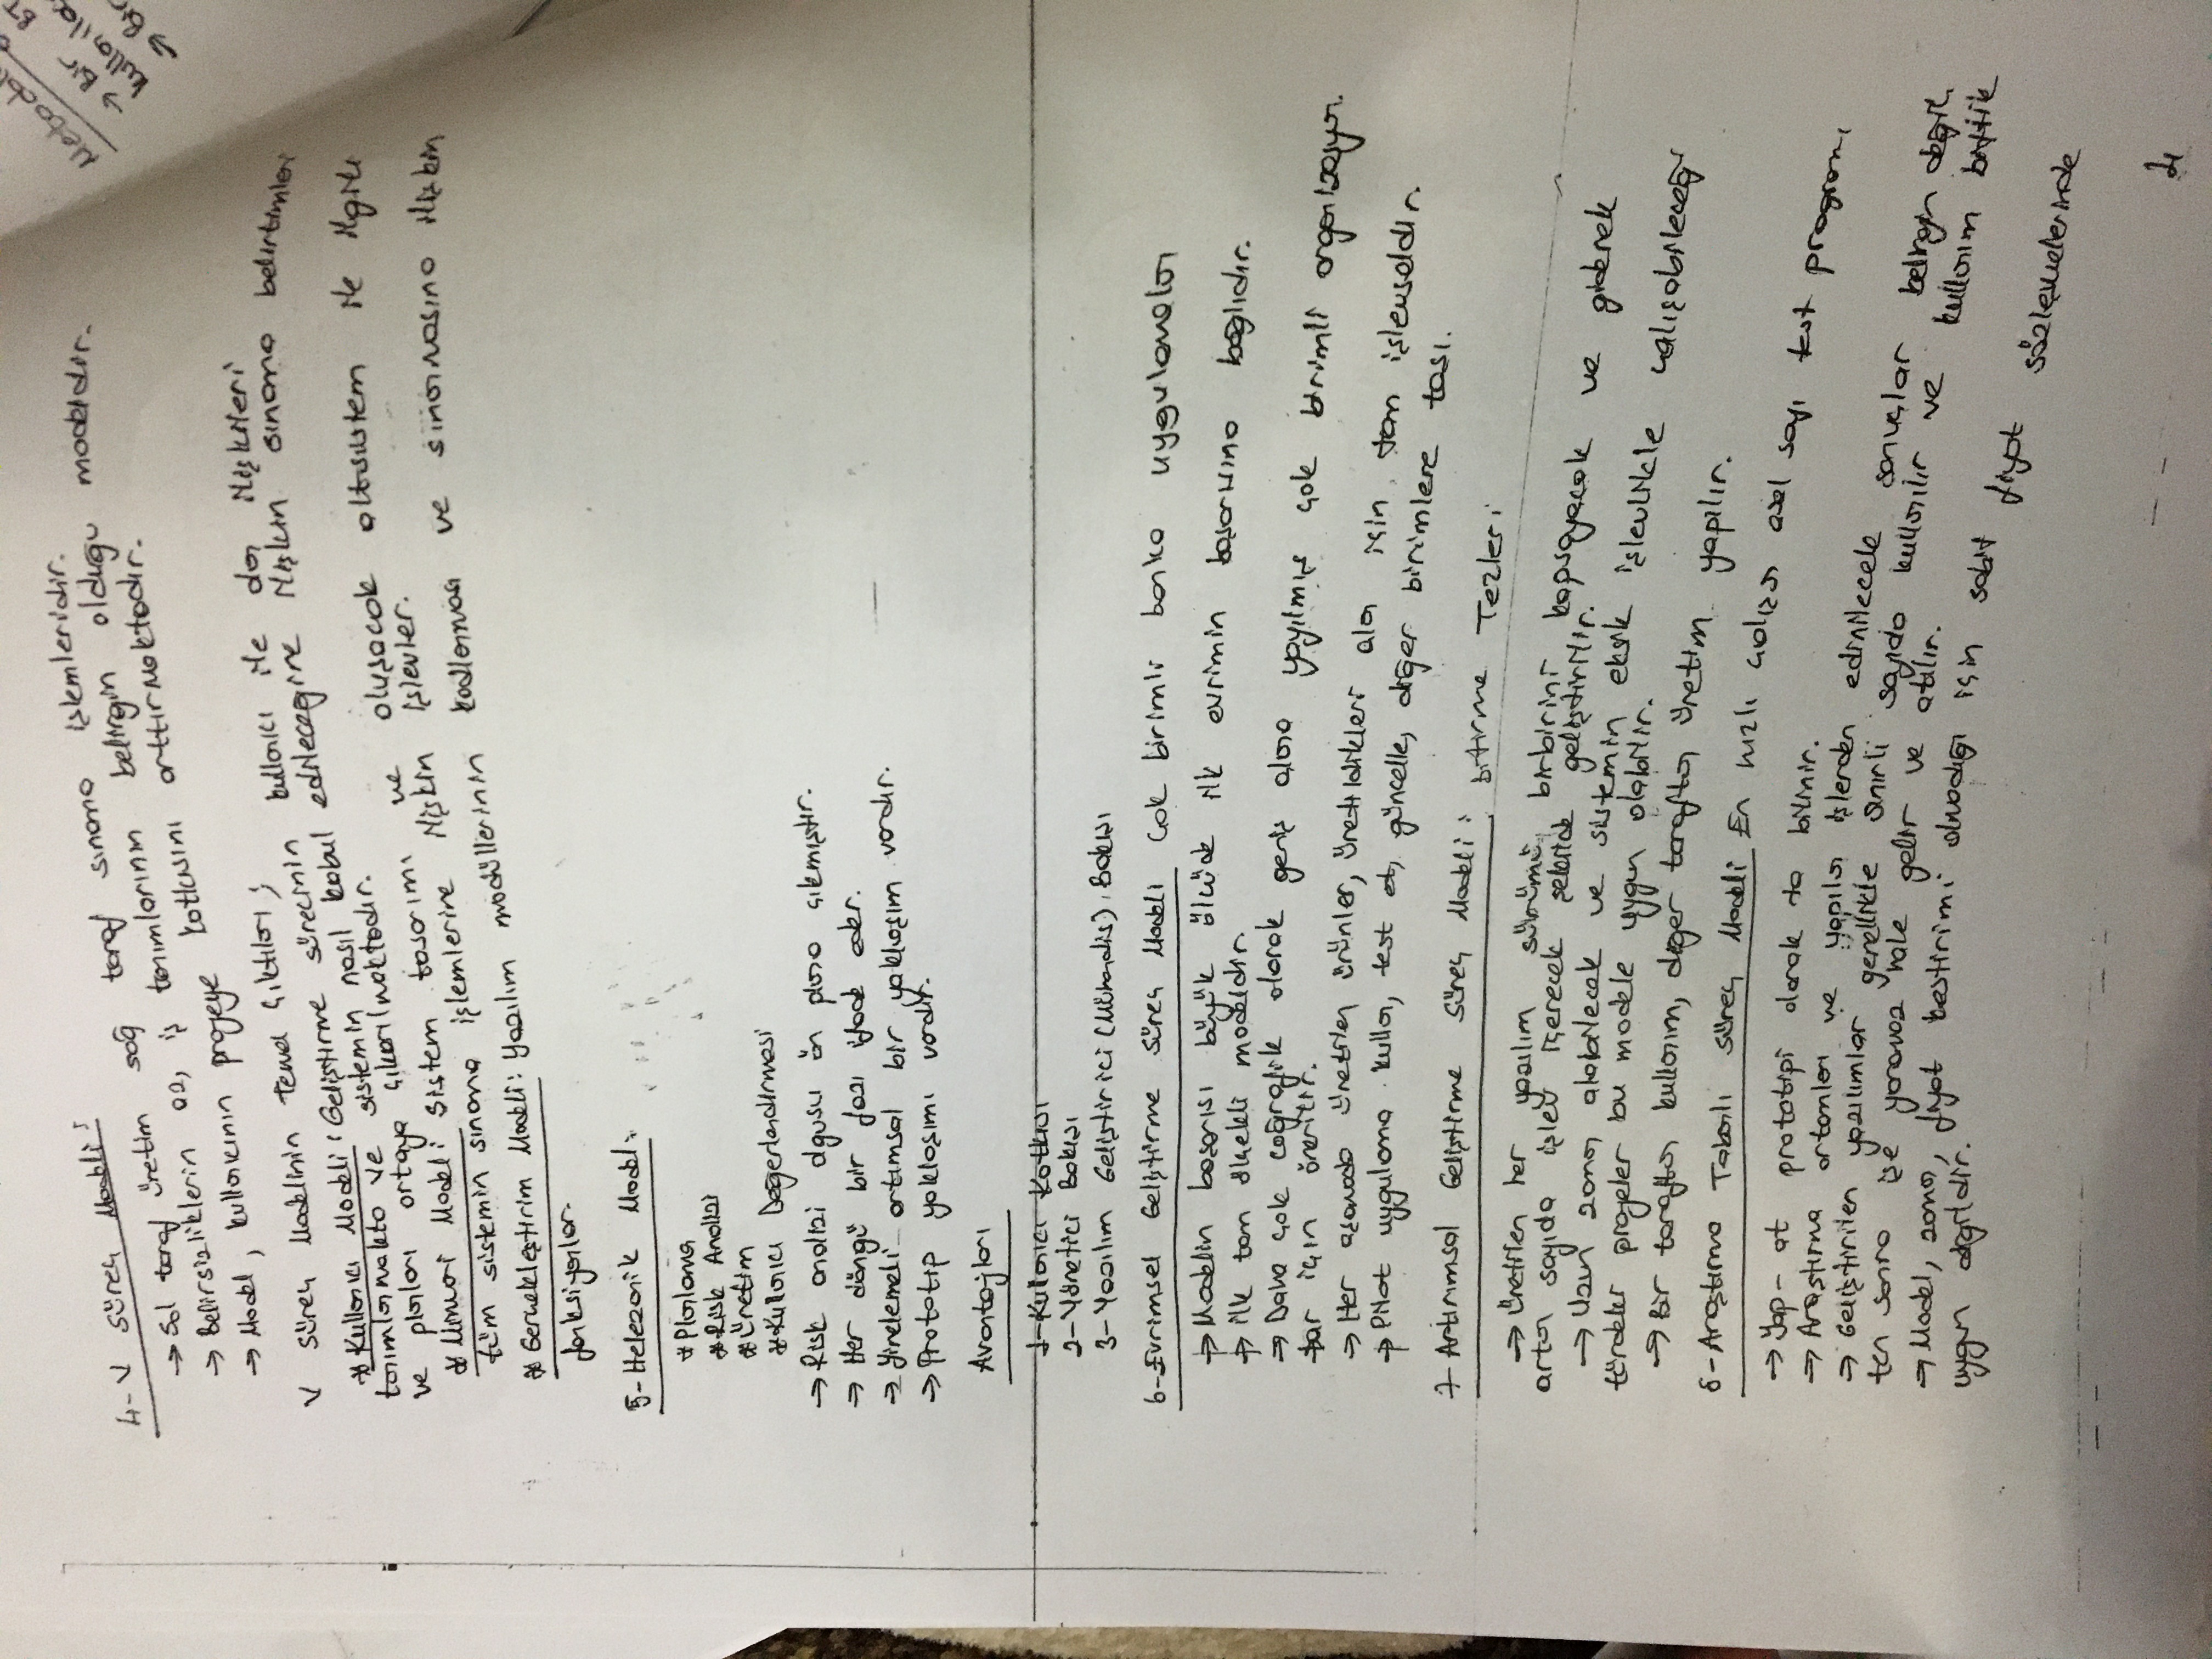 4- V Süreç Modeli:
→ Sol taraf üretim sağ taraf sınama işlemleridir.
→ Belirsizliklerin az, iş tanımlarının belirgin olduğu modeldir.
→ Model, kullanıcının projeye katkısını arttırmaktadır.
V Süreç Modelinin Temel Çıktıları;
* Kullanıcı Modeli: Geliştirme sürecinin kullanıcı ile olan ilişkileri
tanımlanmakta ve sistemin nasıl kabul edileceğine ilişkin sınama belirtimleri
ve planları ortaya çıkarılmaktadır.
* Mimari Modeli: Sistem tasarımı ve oluşacak altsistem ile ilgili
tüm sistemin sınama işlemlerine ilişkin işlevler.
* Gerçekleştirim Modeli: Yazılım modüllerinin kodlanması ve sınanmasına ilişkin
fonksiyonlar.
5- Helezonik Model:
* Planlama
* Risk Analizi
* Üretim
* Kullanıcı Değerlendirmesi
→ Risk analizi olgusu ön plana çıkmıştır.
→ Her döngü bir fazı ifade eder.
→ Yinelemeli artımsal bir yaklaşım vardır.
→ Prototip yaklaşımı vardır.
Avantajları
1- Kullanıcı Katkısı
2- Yönetici Bakışı
3- Yazılım Geliştirici (Mühendis) Bakışı
6- Evrimsel Geliştirme Süreç Modeli Çok birimli banka uygulamaları
→ Modelin başarısı büyük ölçüde ilk evrimin başarısına bağlıdır.
→ İlk tam ölçekli modeldir.
→ Daha çok coğrafik olarak geniş alana yayılmış çok birimli organizasyon.
lar için önerilir.
→ Her aşamada üretilen ürünler, üretildikleri alan için tam işlevseldir.
→ Pilot uygulama kullan, test et, güncelle, diğer birimlere taşı.
7- Artırımsal Geliştirme Süreç Modeli: Bitirme Tezleri
→ Üretilen her yazılım sürümü birbirini kapsayacak ve giderek
artan sayıda işlev içerecek şekilde geliştirilir.
→ Uzun zaman alabilecek ve sistemin eksik işlevlikle çalışabileceği
türdeki projeler bu modele uygun olabilir.
→ Bir taraftan kullanım, diğer taraftan üretim yapılır.
8- Araştırma Tabanlı Süreç Modeli En hızlı çalışan asal sayı test programı
→ Yap-at prototipi olarak ta bilinir.
→ Araştırma ortamları ve yapılan işlerden edinilecek sonuçlar belirgin değil.
→ Geliştirilen yazılımlar genellikle sınırlı sayıda kullanılır ve kullanım bittik
ten sonra işe yaramaz hale gelir ve atılır.
→ Model, zaman, fiyat kestirimi olmadığı için sabit fiyat sözleşmelerinde
uygun değildir.
Metodoloji
→ Bir BT
→ Bir